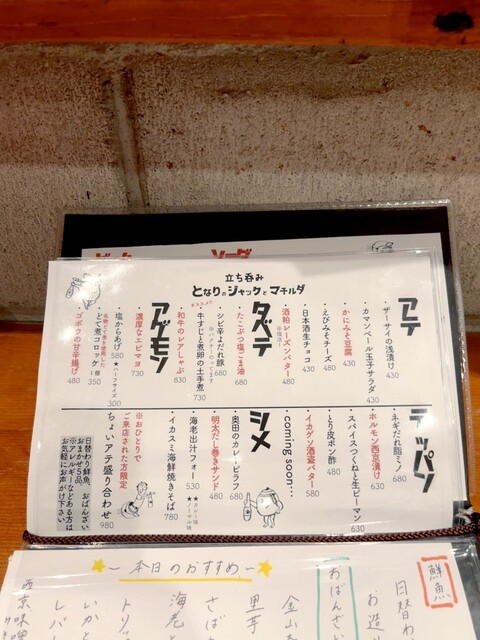 立ち呑み
となりのジャックとマチルダ
アテ
・ザーサイの浅漬け 430
・カマンベール玉子サラダ 430
・かにみそ豆腐 430
・えびみそチーズ 480
・日本酒生チョコ 430
・酒粕レーズンバター 480
タベテ
・たこぶつ塩ごま油 680
・シビ辛よだれ豚 680
・牛すじと煮卵の土手煮 730
・和牛のレアしゃぶ 830
アゲモン
・濃厚なエビマヨ 730
・塩からあげ 580
★ハーフサイズ 300
・どて煮コロッケ 1個 350
・ゴボウの甘辛揚げ 480
テッパン
・ネギだれ脂ミノ 680
・ホルモン西京漬け 630
・スパイスつくねと生ピーマン 630
・とり皮ポン酢 480
・イカゲソ酒盗バター 580
・coming soon…
シメ
・奥田のカレーピラフ 680
・明太だし巻きサンド 480
・海老出汁フォー 530
・イカスミ海鮮焼きそば 780
※おひとりで
ご来店された方限定
ちょいアテ盛り合わせ 980
日替わり鮮魚、おばんざい
おまかせ5品
※アレルギーなどある方は
お気軽にお声がけ下さい
~本日のおすすめ~
鮮魚
日替わ
お造
おばんざい
金山
里芋
さば
海老と
トリ
いかと
レバ
西京味噌